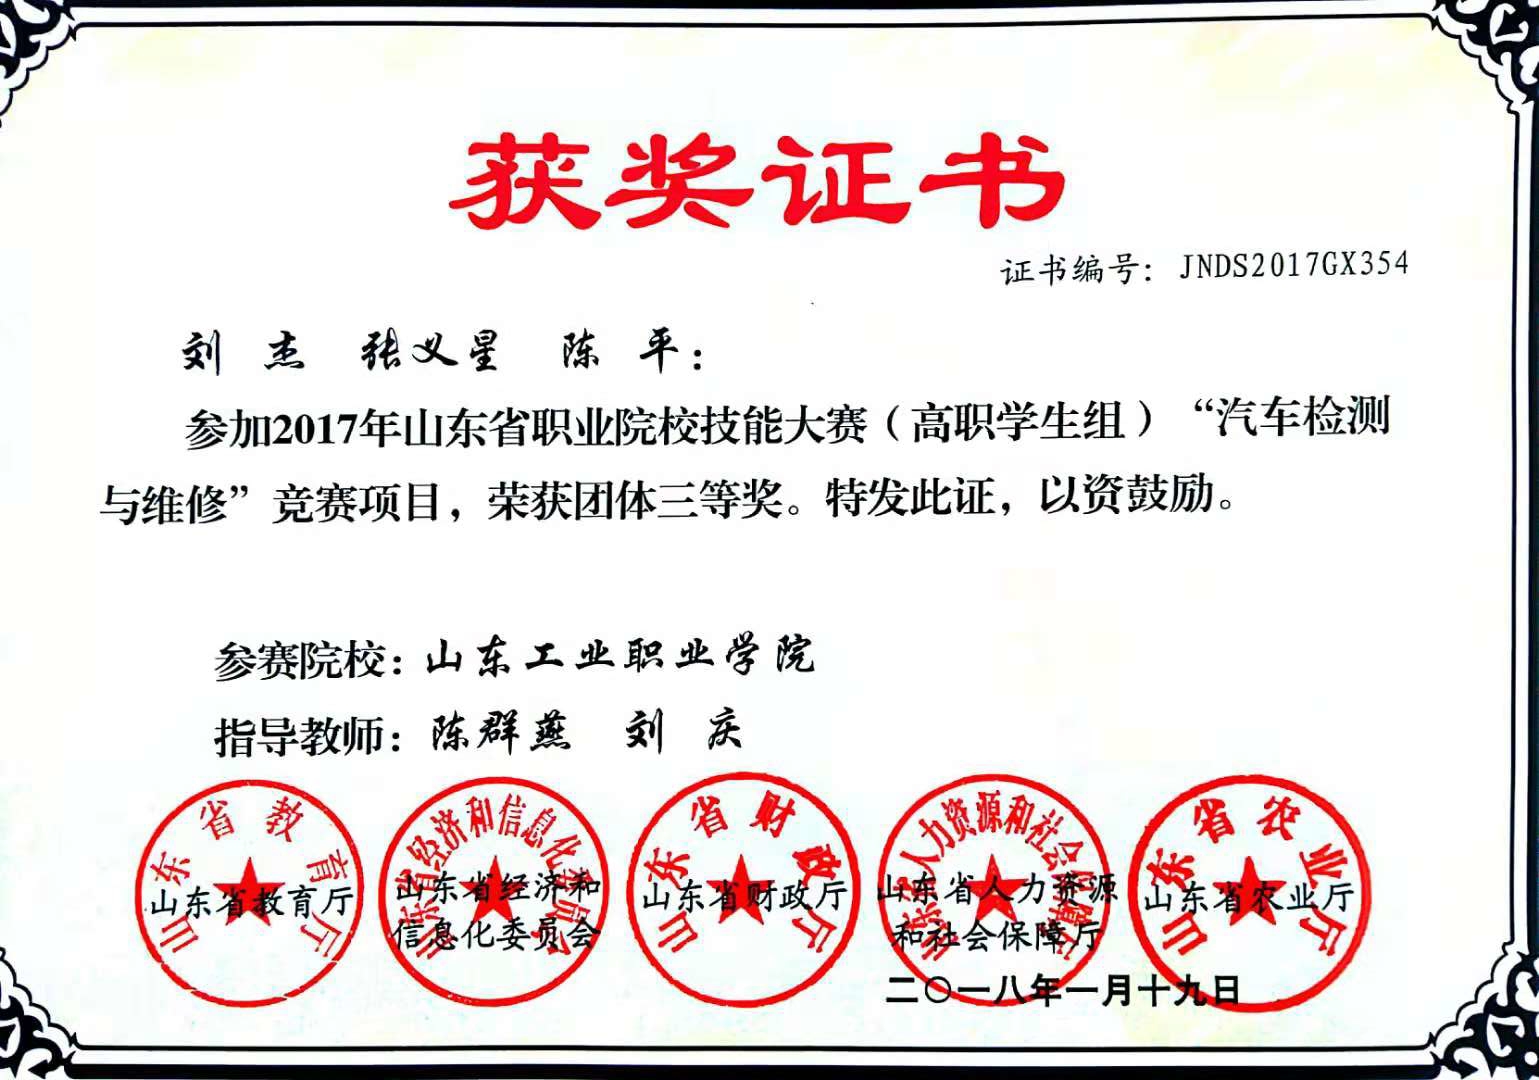 获奖证书
证书编号：JNDS2017GX354
刘 杰 张义星 陈 平：
参加2017年山东省职业院校技能大赛（高职学生组）“汽车检测
与维修”竞赛项目，荣获团体三等奖。特发此证，以资鼓励。
参赛院校：山东工业职业学院
指导教师：陈群燕 刘 庆
山东省教育厅
山东省教育厅
山东省经济和信息化委员会
山东省经济和
信息化委员会
山东省财政厅
山东省财政厅
山东省人力资源和社会保障厅
山东省人力资源
和社会保障厅
山东省农业厅
山东省农业厅
二〇一八年一月十九日